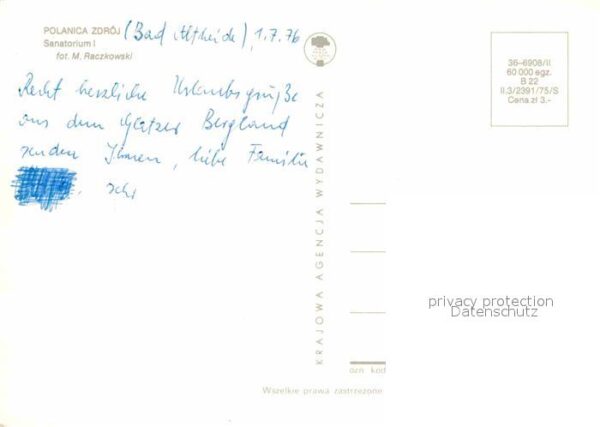 POLANICA ZDRÓJ (Bad Altheide), 1.7.76
Sanatorium I
fot. M. Raczkowski
Recht herzliche Urlaubsgrüße
aus dem Glatzer Bergland
senden Ihnen, liebe Familie
KRAJOWA AGENCJA WYDAWNICZA
36-6908/II
60 000 egz.
B 22
II.3/2391/75/S
Cena zł 3.-
privacy protection
Datenschutz
ozn kod
Wszelkie prawa zastrzeżone